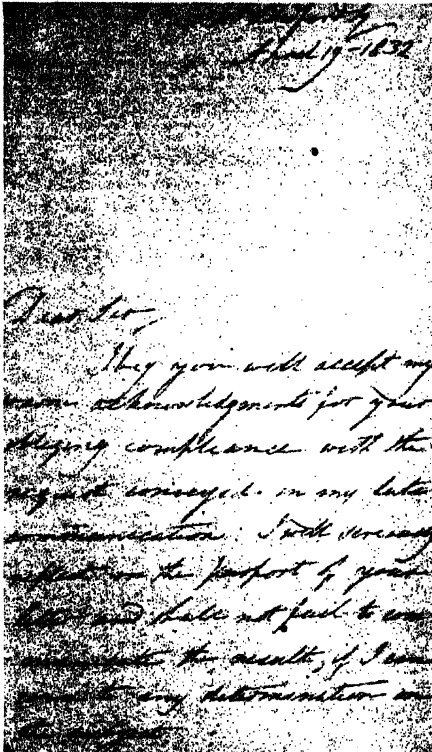 1832
Dear Sir,
I beg you will accept my
warm acknowledgments for your
obliging compliance with the
request conveyed in my late
communication. I will seriously
reflect on the purport of your
letter and shall not fail to com
municate the result, if I can
come to any determination on
the subject